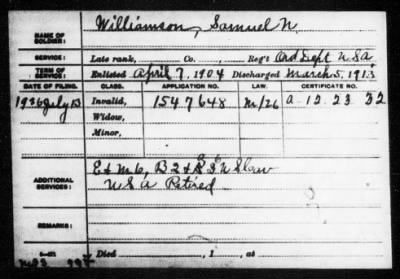 NAME OF SOLDIER: Williamson, Samuel N.
SERVICE: Late rank, Co. , Reg't Ord Dept U S A
TERM OF SERVICE: Enlisted April 7, 1904 Discharged March 5, 1913
DATE OF FILING. CLASS. APPLICATION NO. LAW. CERTIFICATE NO.
1926 July 13 Invalid, 1547648 M/26 a 12 23 32
Widow,
Minor,
ADDITIONAL SERVICES: E & M 6, B 2 &
U S A Retired
REMARKS:
Died , 1 , at